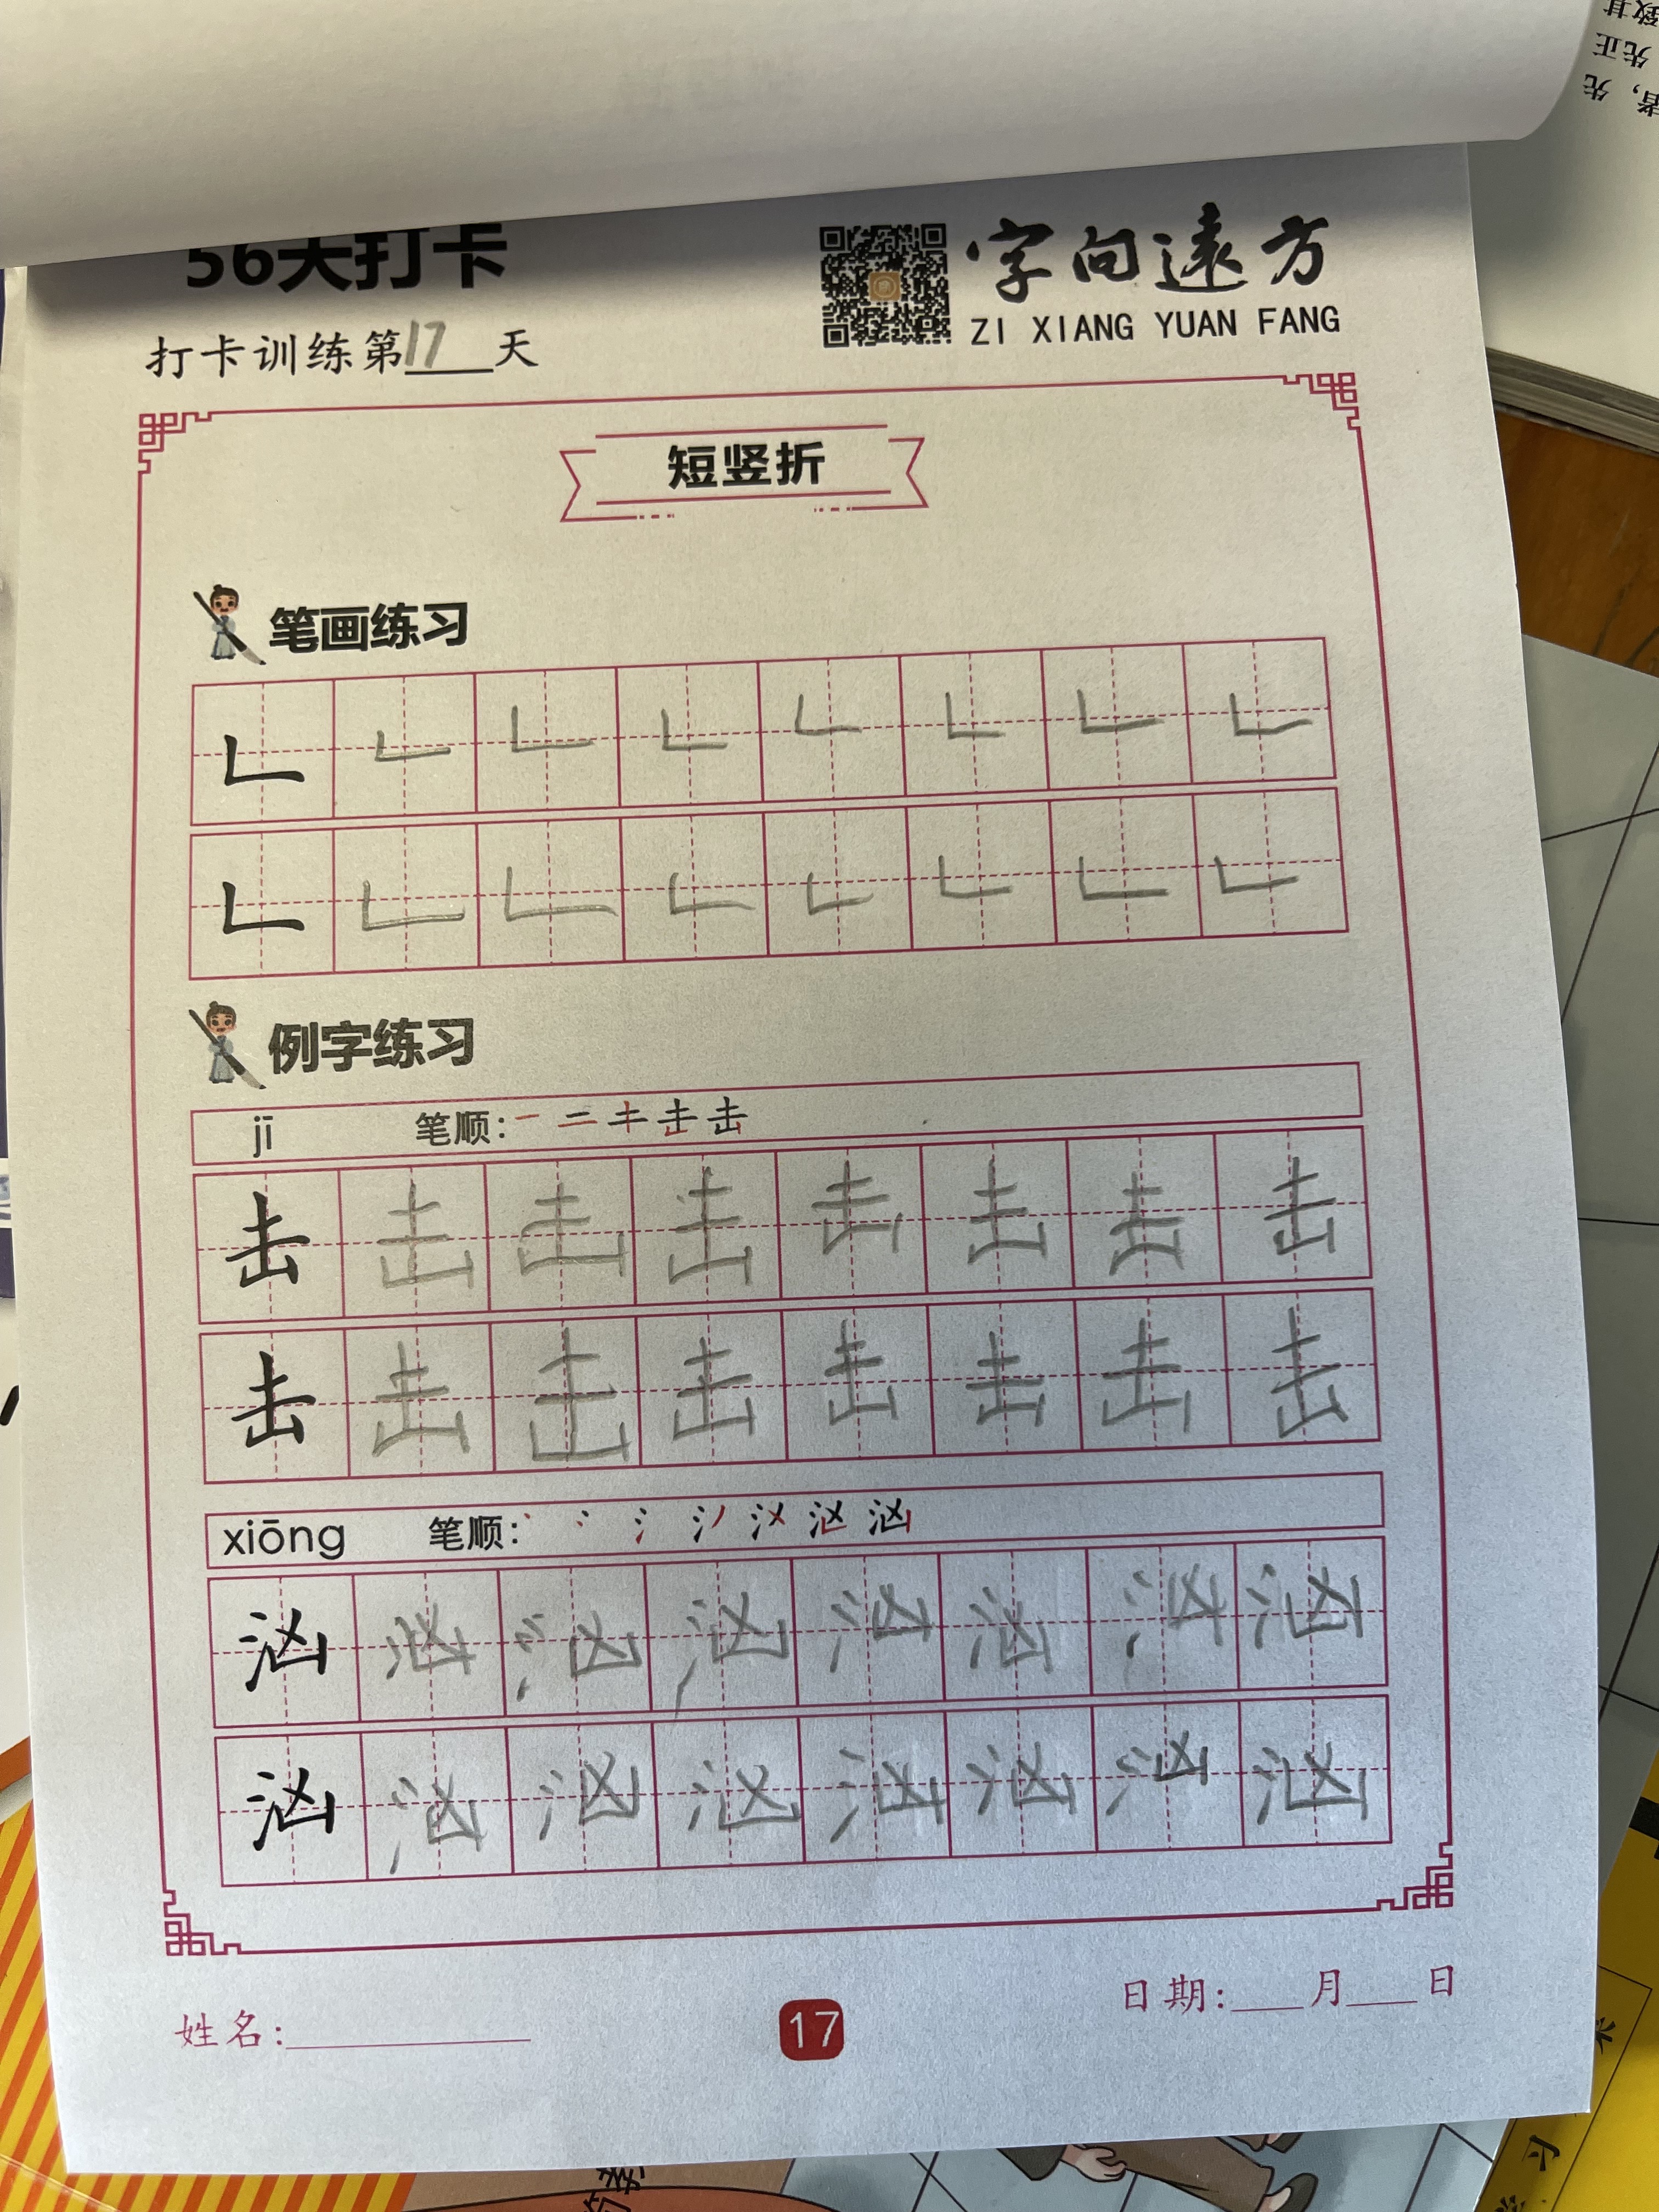 56天打卡
字向遠方
ZI XIANG YUAN FANG
打卡训练第17天
短竖折
笔画练习
例字练习
jī 笔顺:
击 击 击 击 击 击 击 击
击 击 击 击 击 击 击 击
xiōng 笔顺: 汹
汹 汹 汹 汹 汹 汹 汹 汹
汹 汹 汹 汹 汹 汹 汹 汹
姓名:
17
日期: 月 日
致其
先正
者,先